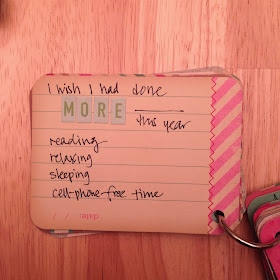 i wish I had done
MORE ______
this year
reading
relaxing
sleeping
cell-phone-free time
date: / /